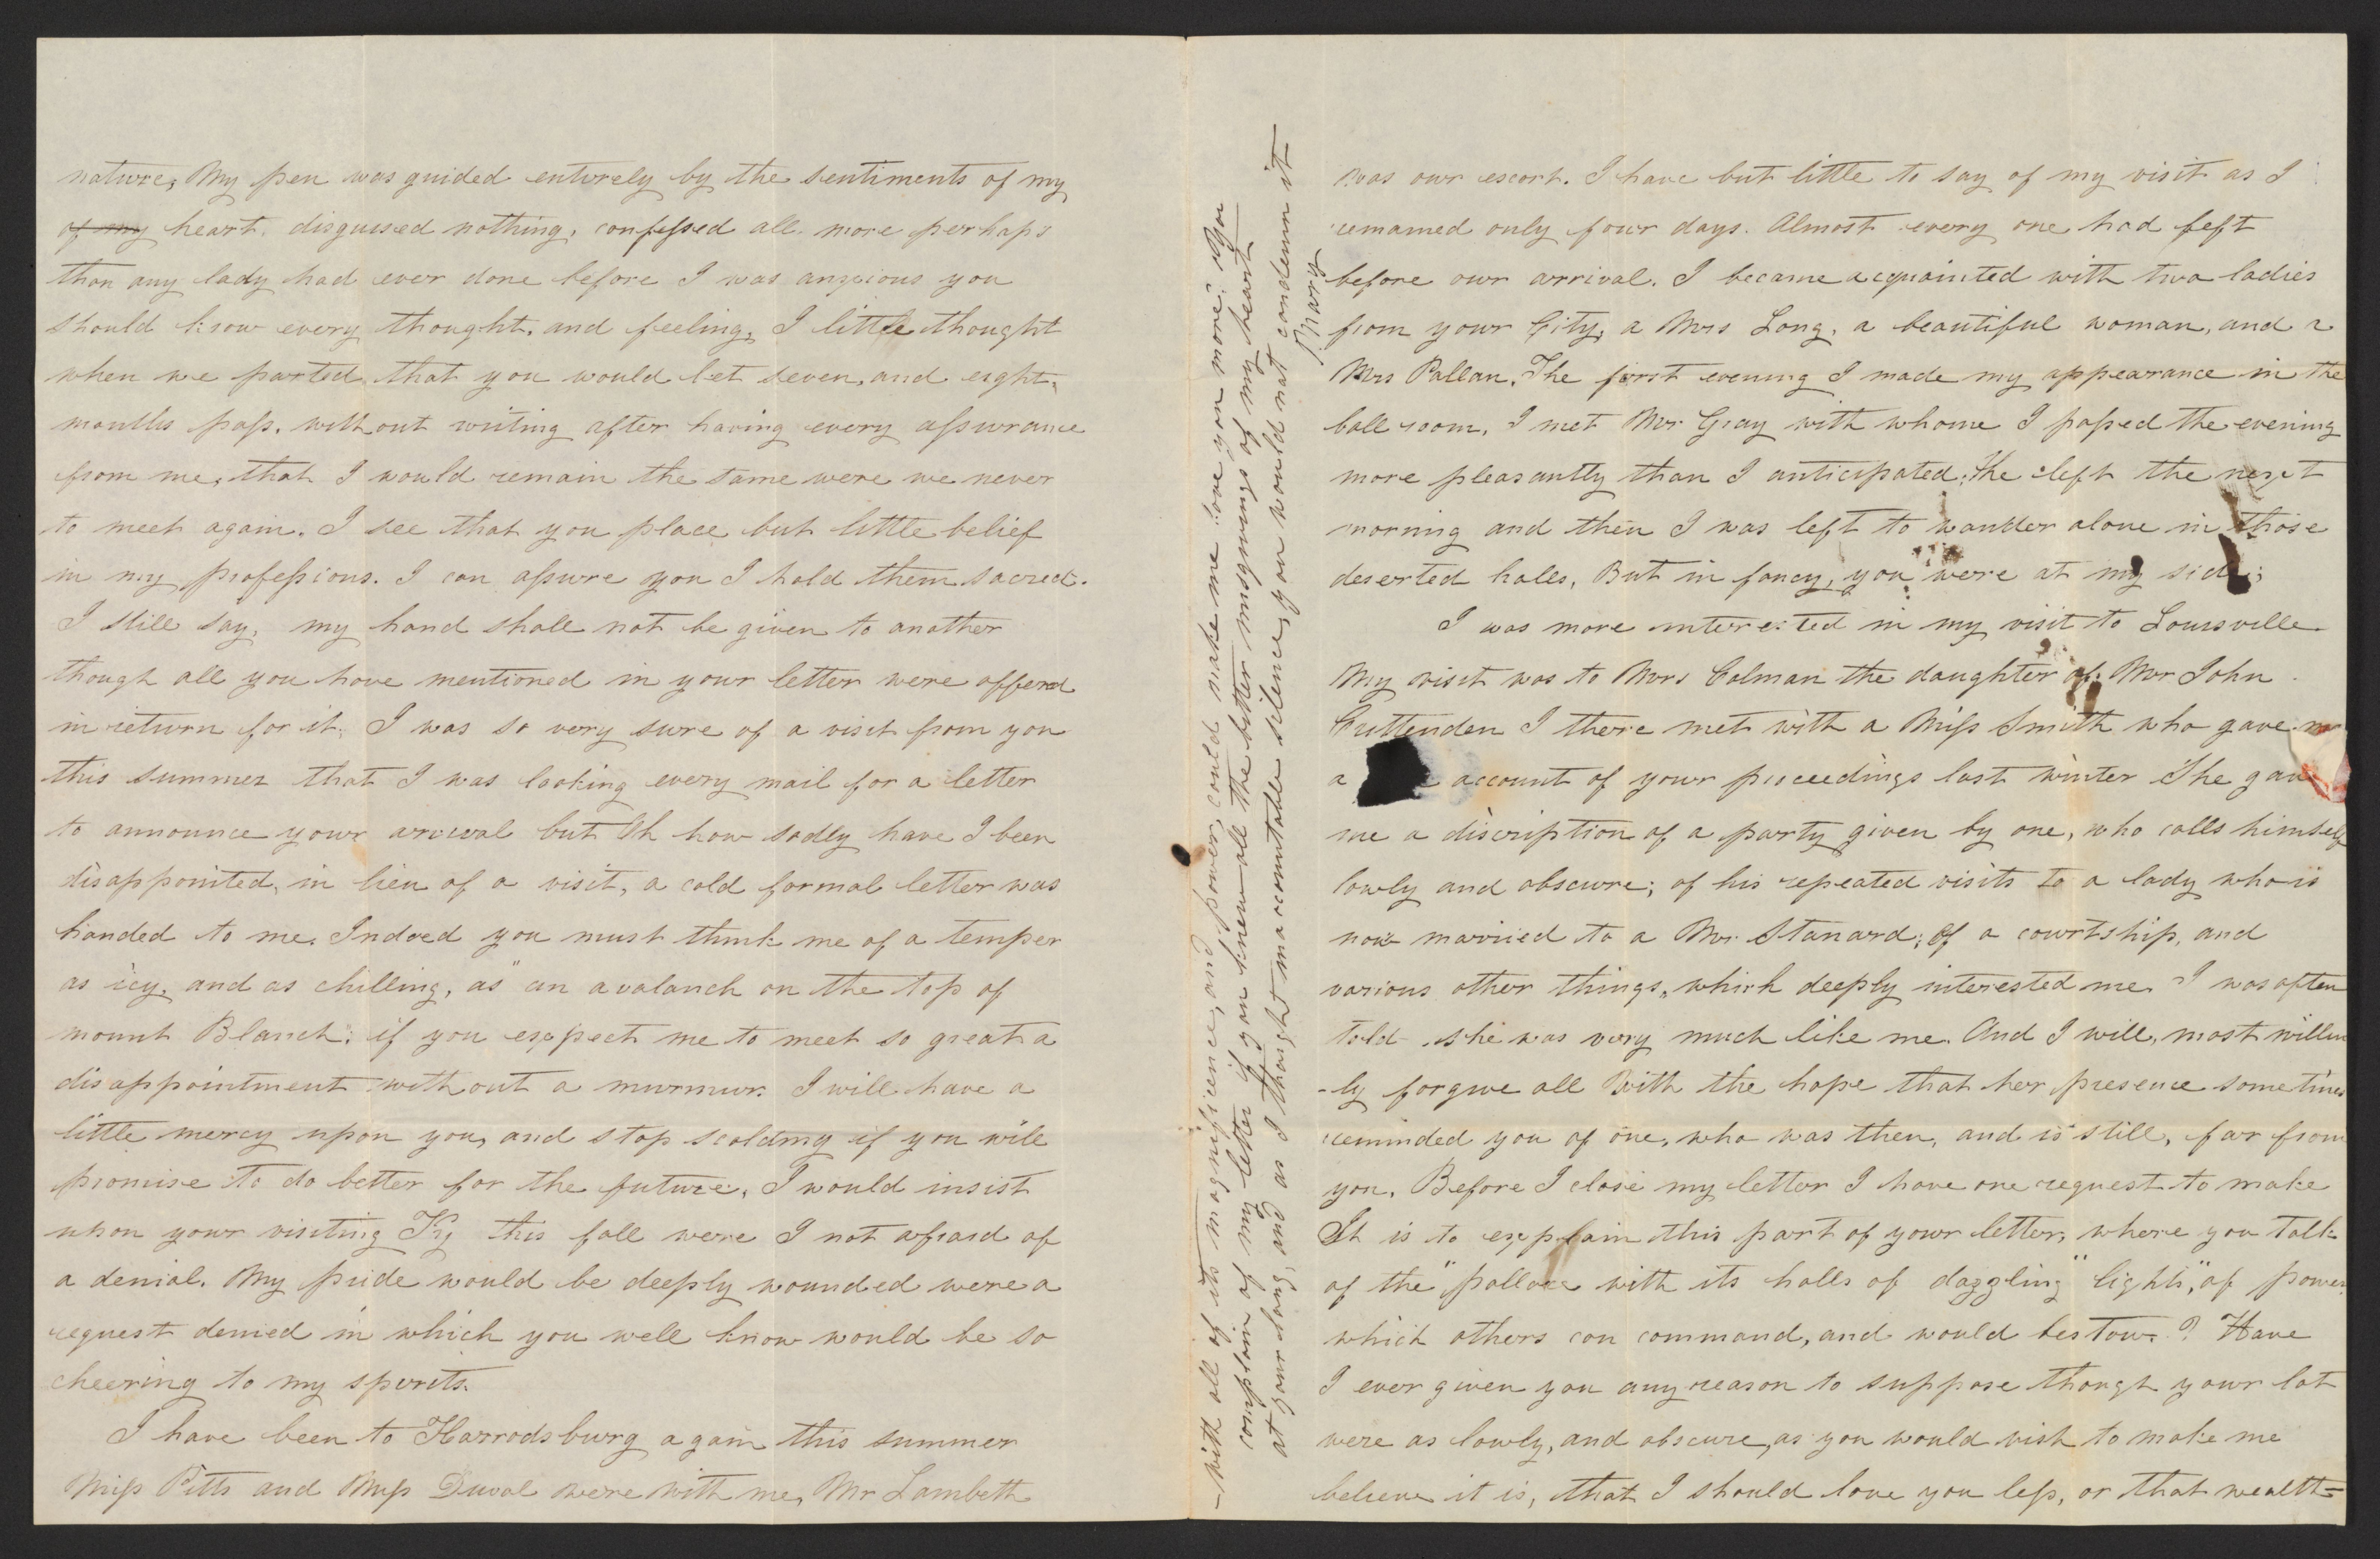 nature, My pen was guided enturely by the sentiments of my
of my heart, disguised nothing, confessed all more perhaps
than any lady had ever done before I was anxious you
should know every thought, and feeling, I little thought
when we parted that you would let seven, and eight,
months pass, without writing after having every assurance
from me, that I would remain the same were we never
to meet again. I see that you place but little belief
in my professions. I can assure you I hold them sacred.
I still say, my hand shall not be given to another
though all you have mentioned in your letter were offered
in return for it. I was so very sure of a visit from you
this summer that I was looking every mail for a letter
to announce your arrival but Oh how sadly have I been
disappointed, in lieu of a visit, a cold formal letter was
handed to me. Indeed you must think me of a temper
as icy, and as chilling, as "an avalanch on the top of
mount Blanch"; if you expect me to meet so great a
disappointment without a murmur. I will have a
little mercy upon you, and stop scolding if you will
promise to do better for the future, I would insist
upon your visiting Ky this fall were I not afraid of
a denial. My pride would be deeply wounded were a
request denied in which you well know would be so
cheering to my spirits.
I have been to Harrodsburg again this summer
Miss Pitts and Miss Duval were with me, Mr Lambeth
was our escort. I have but little to say of my visit as I
remained only four days. Almost every one had left
before our arrival. I became acquainted with two ladies
from your City, a Mrs Long, a beautiful woman, and a
Mrs Pallan. The first evening I made my appearance in the
ball room, I met Mr Gray with whome I passed the evening
more pleasantly than I anticipated, He left the next
morning and then I was left to wander alone in those
deserted halls, But in fancy, you were at my side;
I was more interested in my visit to Louisville
My visit was to Mrs Colman the daughter of Mr John
Crittenden I there met with a Miss Smith who gave me
a account of your proceedings last winter She gave
me a discription of a party given by one, who calls himself
lowly and obscure; of his repeated visits to a lady who is
now married to a Mr. Stanard; of a courtship, and
various other things, which deeply interested me. I was often
told she was very much like me. And I will, most willin
-ly forgive all with the hope that her presence sometimes
reminded you of one, who was then, and is still, far from
you. Before I close my letter I have one request to make
It is to explain this part of your letter, where you talk
of the "pallace with its halls of dazzling" lights, "of power
which others can command, and would bestow"? Have
I ever given you any reason to suppose though your lot
were as lowly, and obscure, as you would wish to make me
believe it is, that I should love you less, or that wealth=
-with all of its magnificience, and power, could make me love you more? You
complain of my letter if you knew all the bitter misgivings of my heart
at your long, and as I thought unaccountable silence, you would not condemn it
Mary